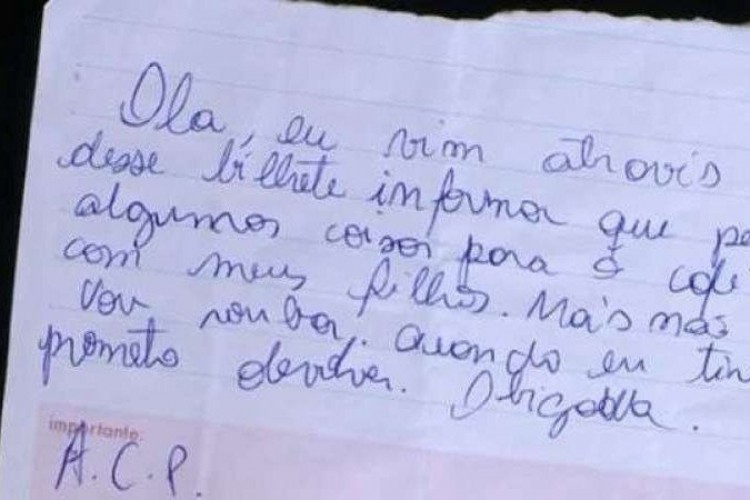 Ola, eu vim atravís
desse bilhete informar que pe
algumas coisas para o cafe
com meus filhos. Mas não
Vou roubar. Quando eu tin
prometo devolver. Obigada.
importante:
A.C.P.